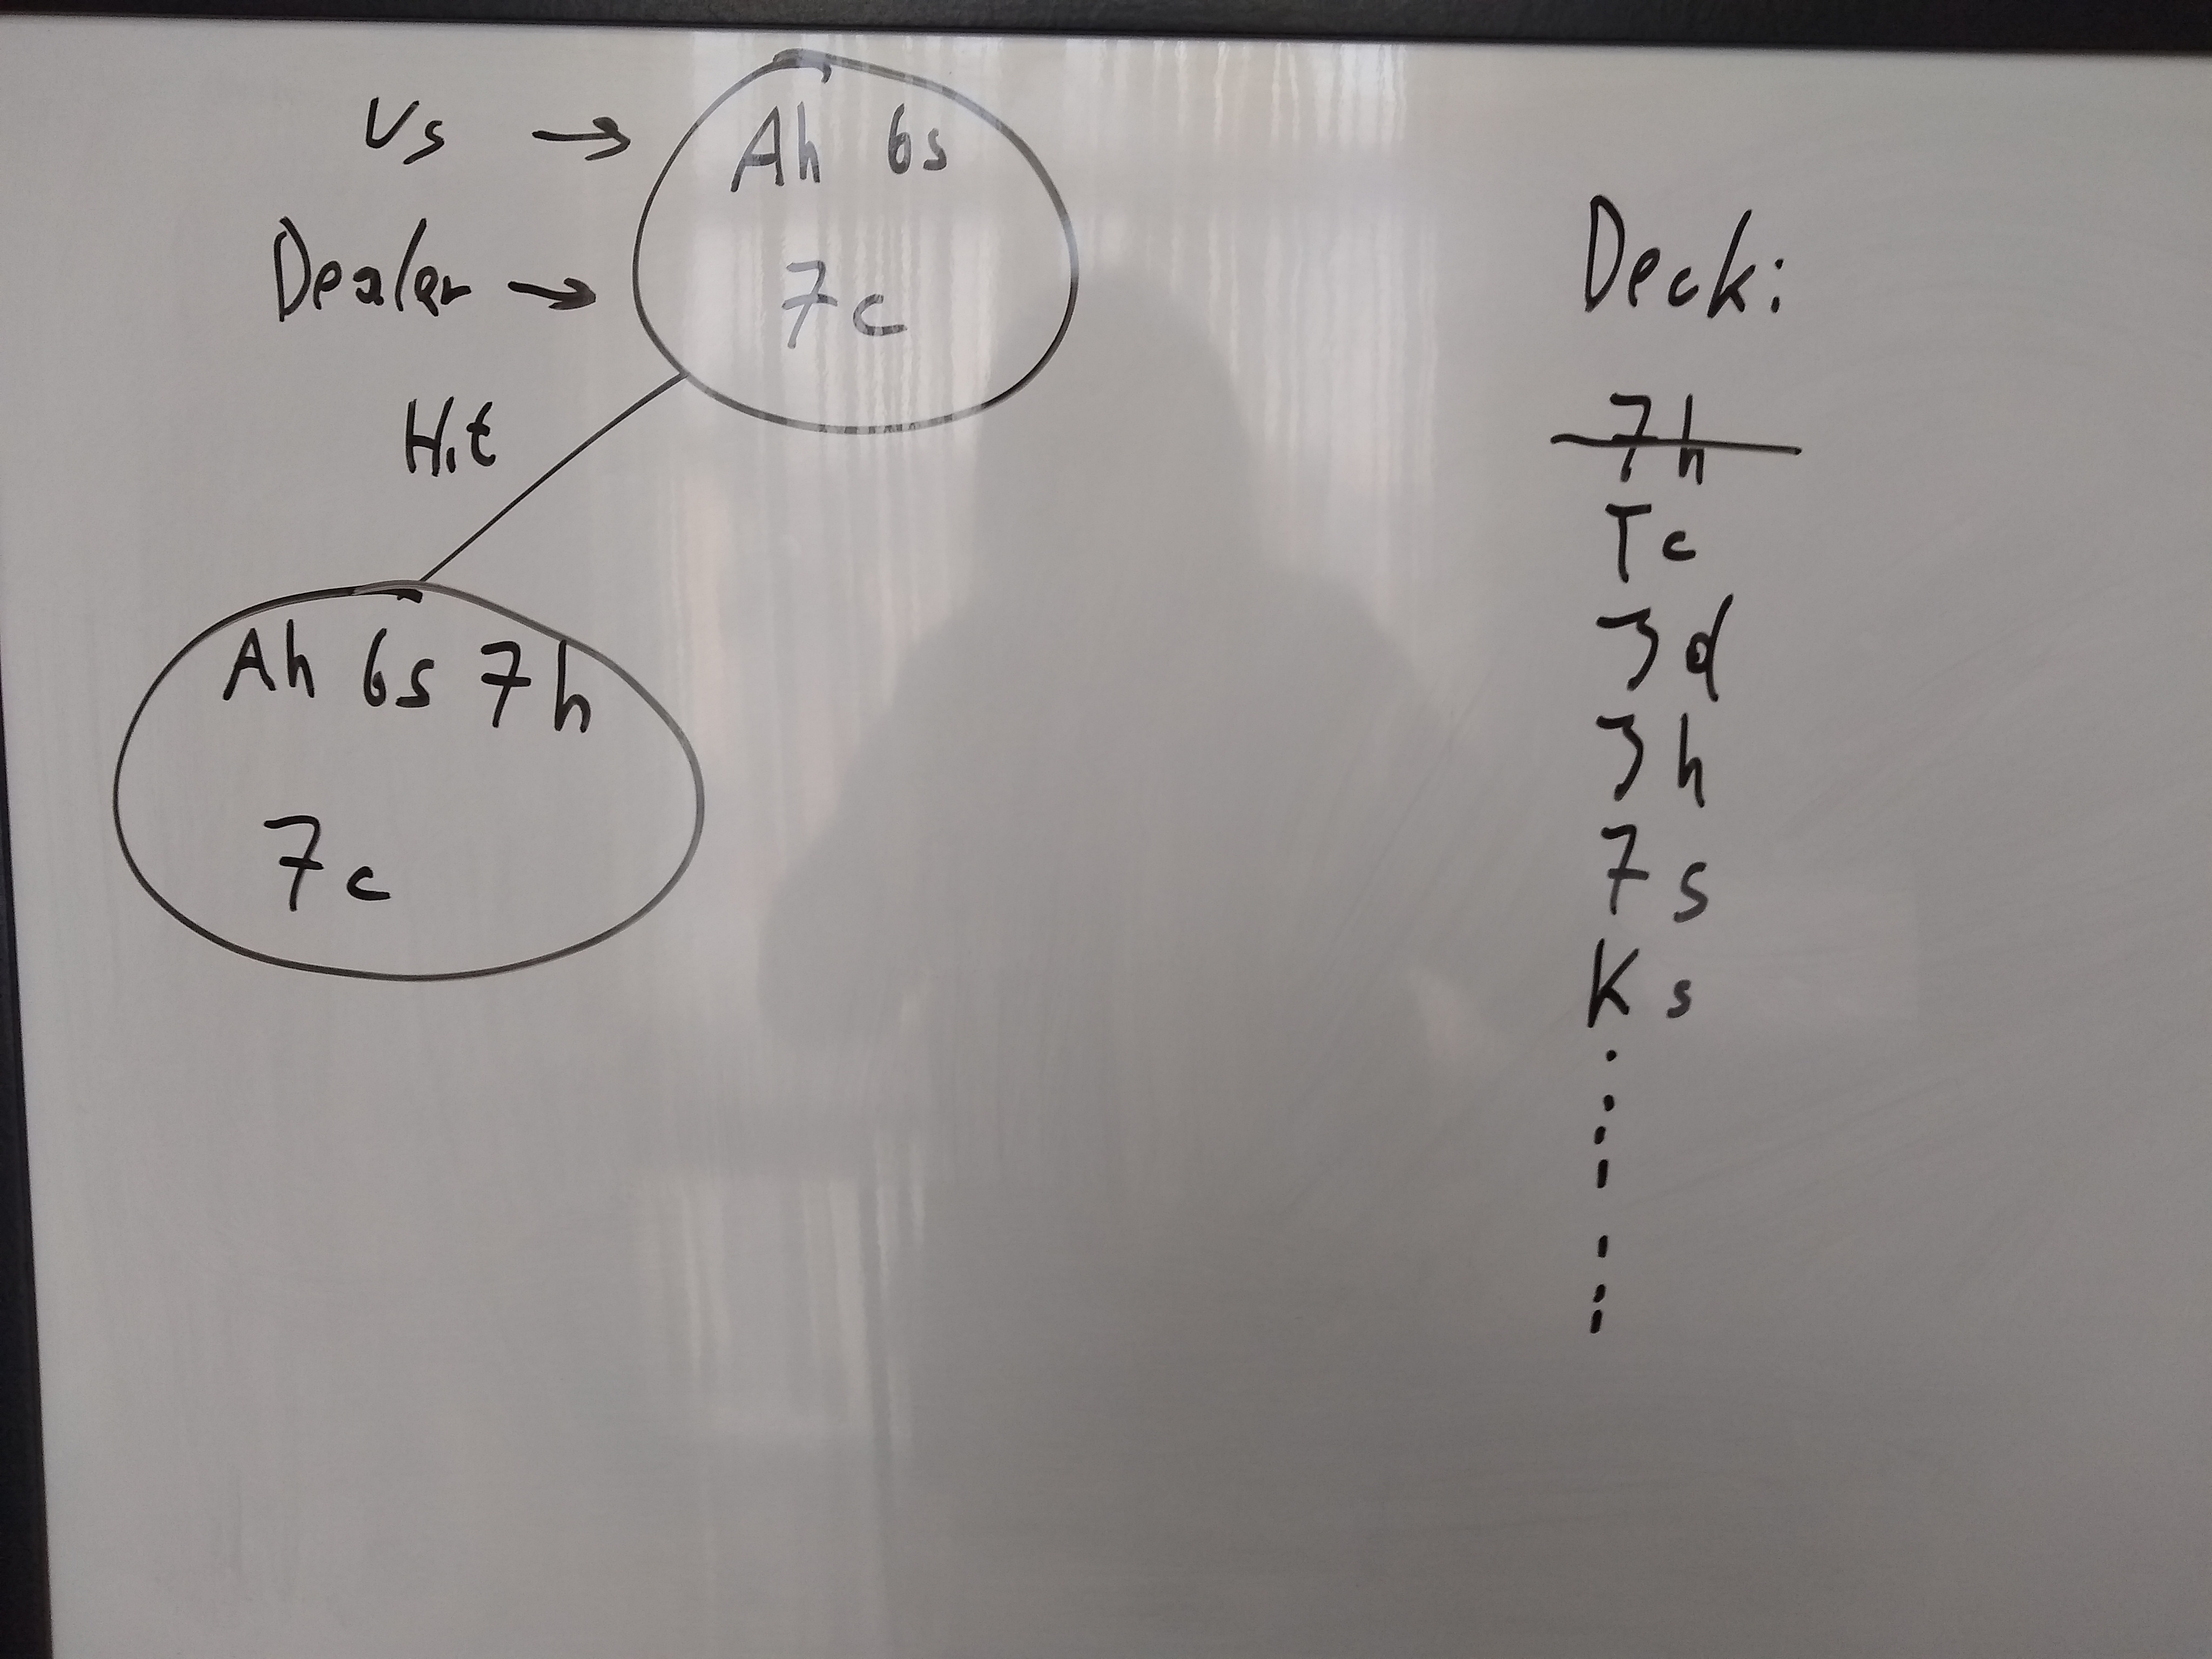 Us → Ah 6s
Dealer → 7c
Hit
Ah 6s 7h
7c
Deck:
7h
Tc
3d
3h
7s
Ks